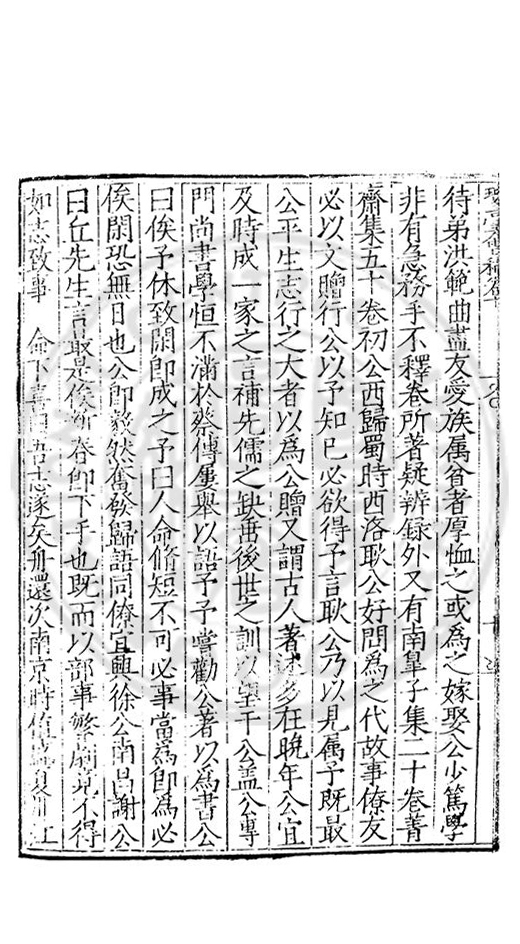 待弟洪範曲盡友愛族属貧者厚恤之或為之嫁娶公少篤學
非有急務手不釋卷所著疑辨録外又有南皐子集二十卷菁
齋集五十卷初公西歸蜀時西洛耿公好問為之代故事僚友
必以文贈行公以予知已必欲得予言耿公乃以見属予既最
公平生志行之大者以為公贈又謂古人著述多在晚年公宜
及時成一家之言補先儒之缺垂後世之訓以望于公盖公專
門尚書學恒不滿於蔡傳屢舉以語予予嘗勸公著以為書公
曰俟予休致閑即成之予曰人命脩短不可必事當為即為必
俟閑恐無日也公即毅然奮發歸語同僚宜興徐公南昌謝公
曰丘先生言最是俟新春即下手也既而以部事繁劇竟不得
如志致事 命下喜曰吾志遂矣舟還次南京時
江